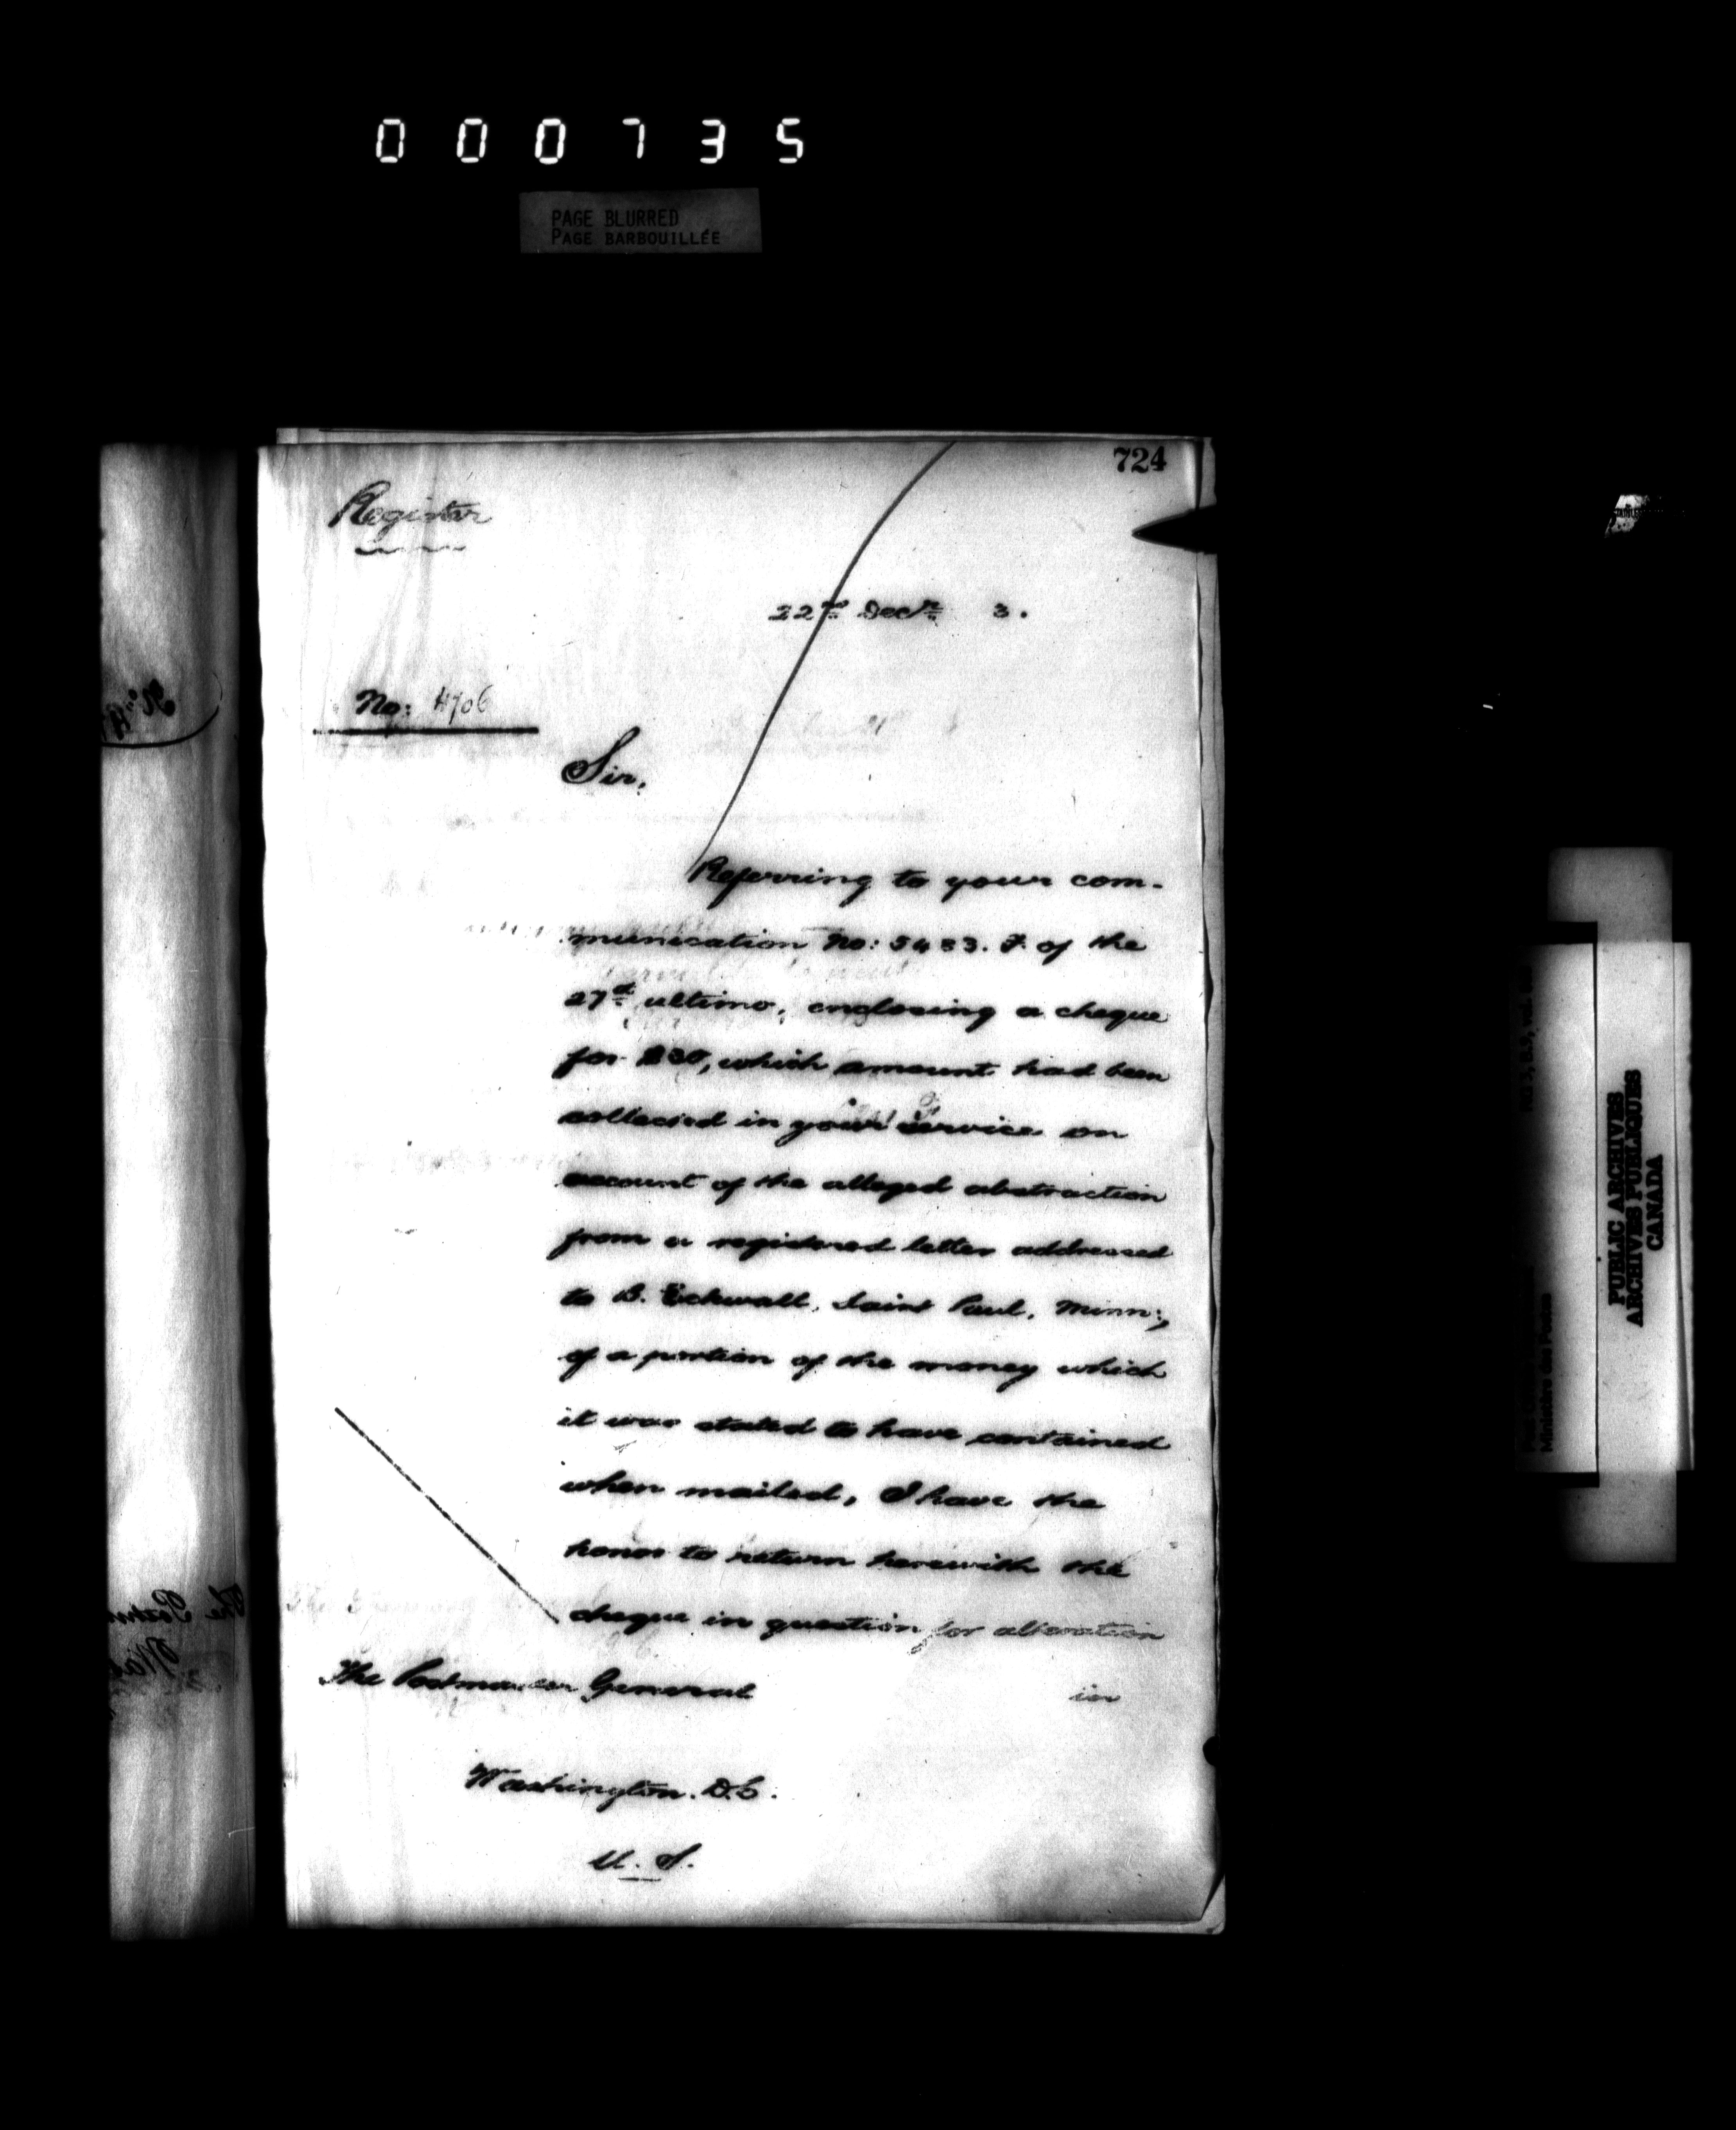 000735
PAGE BLURRED
PAGE BARBOUILLÉE
724
Register
22nd Decr. 3.
No: 4706
Sir,
Referring to your com-
munication No: 5483. F. of the
27th ultimo, enclosing a cheque
for which amount had been
collected in your Service on
account of the alleged abstraction
from a registered letter addressed
to B. Eckwall, Saint Paul, Minn:,
of a portion of the money which
it was stated to have contained
when mailed, I have the
honor to return herewith the
cheque in question for alteration
in
The Postmaster General
Washington. D.C.
U. S.
PUBLIC ARCHIVES
ARCHIVES PUBLIQUES
CANADA